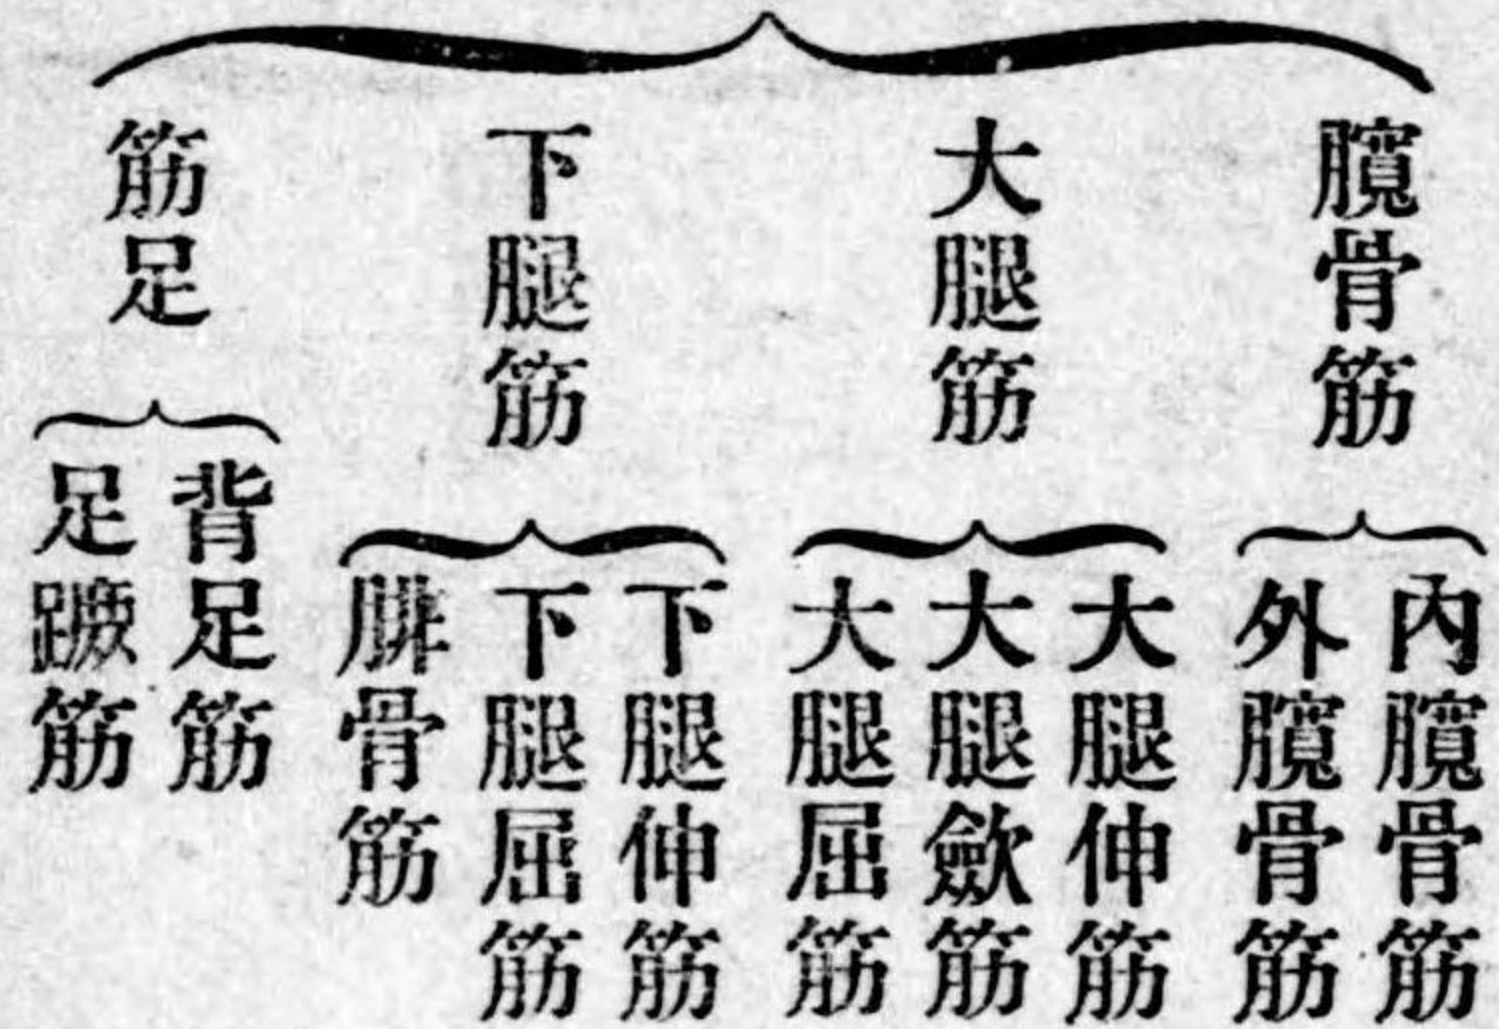 臗骨筋
內臗骨筋
外臗骨筋
大腿筋
大腿伸筋
大腿歛筋
大腿屈筋
下腿筋
下腿伸筋
下腿屈筋
腓骨筋
筋足
背足筋
足蹶筋